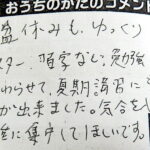 おうちのかたのコメント
盆休みも、ゆっくり
スター、語学など、勉強
わらせて、夏期講習に
が出来ました。気合を
に集中してほしいです。